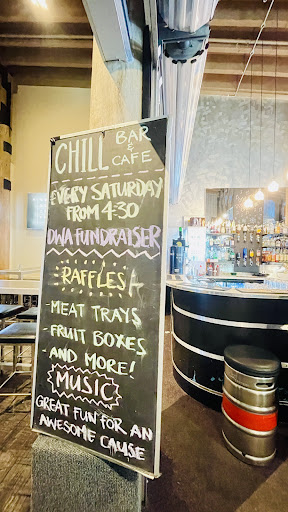 CHILL BAR & CAFE
EVERY SATURDAY
FROM 4:30
DWA FUNDRAISER
RAFFLES
-MEAT TRAYS
-FRUIT BOXES
-AND MORE!
MUSIC
GREAT FUN FOR AN
AWESOME CAUSE